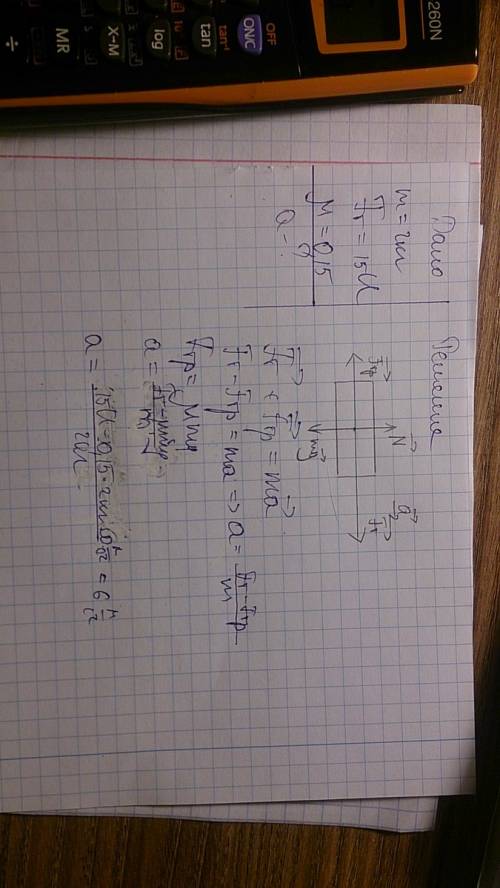 260N
OFF
ON/C
tan⁻¹
tan
log
X→M
MR
÷
Дано
m = 2кг
Fт = 15Н
μ = 0,15
a - ?
Решение
N
a
Fтр
Fт
mg
Fт + Fтр = ma
Fт - Fтр = ma => a = Fт - Fтр / m
Fтр = μmg
a = Fт - μmg / m
a = 15Н - 0,15 · 2кг · 10 м/с² / 2кг = 6 м/с²